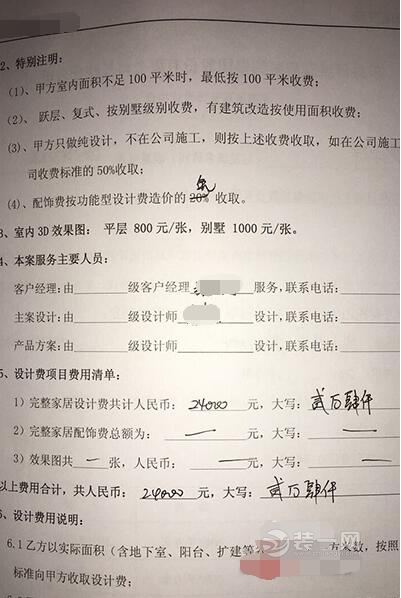 2、特别注明:
(1)、甲方室内面积不足100平米时，最低按100平米收费;
(2)、 跃层、复式、按别墅级别收费，有建筑改造按使用面积收费;
(3)、甲方只做纯设计，不在公司施工，则按上述收费收取，如在公司施工
司收费标准的50%收取;
(4)、配饰费按功能型设计费造价的20%收取。
3、室内3D效果图: 平层 800元/张，别墅 1000元/张。
4、本案服务主要人员:
客户经理:由______级客户经理______服务,联系电话:______
主案设计:由______级设计师______设计,联系电话:______
产品方案:由______级设计师______设计,联系电话:______
5、设计费项目费用清单:
1) 完整家居设计费共计人民币: 24000 元，大写: 贰万肆仟
2) 完整家居配饰费总额为: 一 元，大写: 一
3) 效果图共 一 张，人民币: 一 元，大写: 一
以上费用合计，共人民币: 24000 元，大写: 贰万肆仟
6、设计费用说明:
6.1 乙方以实际面积（含地下室、阳台、扩建等 方米数，按照
标准向甲方收取设计费;
装一网